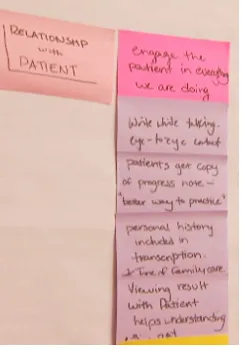 RELATIONSHIP
with
PATIENT
engage the
patient in everything
we are doing
Write while talking.
eye-to-eye contact
patients get copy
of progress note -
"better way to practice"
personal history
included in
transcription.
Time of family care.
Viewing result
with Patient
helps understanding